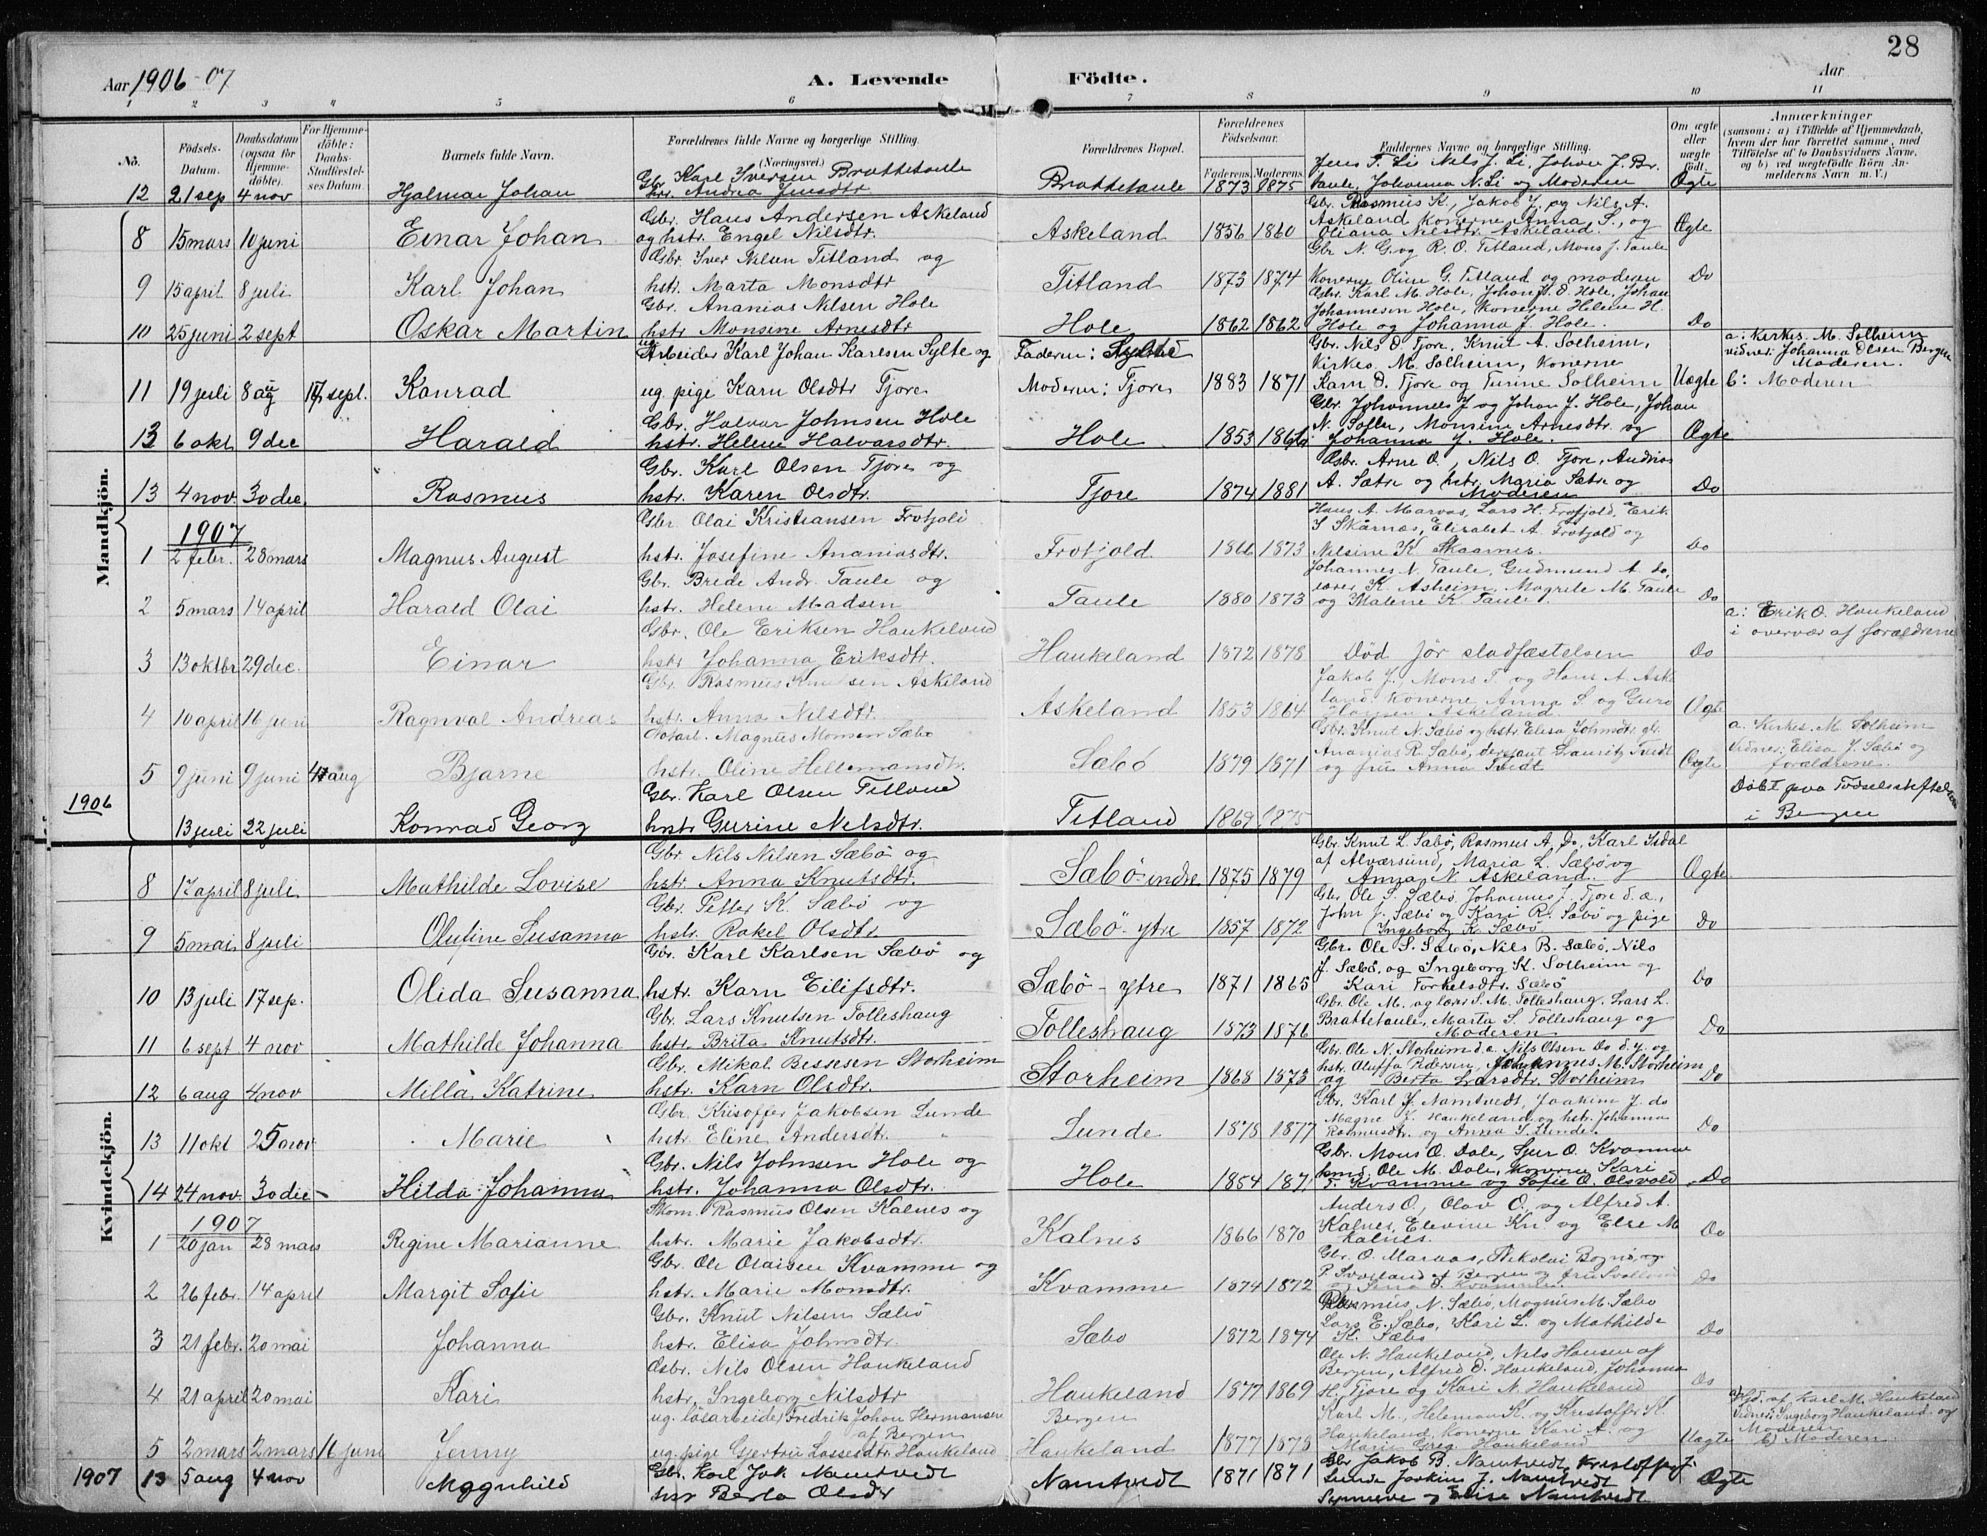 28
Aar 1906-07 A. Levende Födte. Aar
1 2 3 4 5 6 7 8 9 10 11
No. Födsels-Datum. Daabsdatum (ogsaa for Hjemmedöbte). For Hjemmedöbte: Daabs-Stadfæstelses Datum. Barnets fulde Navn. Forældrenes fulde Navne og borgerlige Stilling. (Næringsvei) Forældrenes Bopæl. Forældrenes Födselsaar. Faderens Moderens Faddernes Navne og borgerlige Stilling. Om ægte eller uægte födt. Anmærkninger (saasom: a) i Tilfælde af Hjemmedaab, hvem der har forrettet samme, med Tilföielse af to Daabsvidners Navne, og b) ved uægtefödte Börn Anmelderens Navn m. V.)
Mandkjön.
Gbr. Karl Iversen Brattetaule Jens T. Li Nils J. Li, Johan J. Br.
12 21 sep 4 nov Hjalmar Johan hstr. Andrea Jensdtr Brattetaule 1873 1875 taule, Johanna N. Li og Moderen Ægte
Gbr. Hans Andersen Askeland Gbr. Rasmus K., Jakob J. og Nils A.
8 15 mars 10 juni Einar Johan og hstr. Engel Nilsdtr. Askeland 1856 1860 Askeland, Konerne Anna S., og Oliana Nilsdtr. Askeland. Ægte
Gbr. Iver Nilsen Titland og Gbr N. G. og R. O. Titland, Mons J. Taule
9 15 april 8 juli Karl Johan hstr. Marta Monsdtr Titland 1873 1874 Konerne Oline G. Titland og moderen Do
Gbr. Ananias Nilsen Hole Gbr. Karl M. Hole, Johan J. d Hole, Johan
10 25 juni 2 sept Oskar Martin hstr. Monsine Arnesdtr Hole 1862 1862 Johannesen Hole, Konerne Helene H. Hole og Johanna J. Hole. Do
ug Arbeider Karl Johan Karlsen Sylte og Faderen: Sylte Gbr. Nils O. Tjore, Knut A. Solheim, a: Kirkes. M. Solheim
Kirkes M. Solheim, Konerne vidner: Johanna Olsen Bergen Moderen.
11 19 juli 8 aug 17 sept. Konrad ug. pige Karn Olsdtr Tjore Moderen: Tjore 1883 1871 Karn O. Tjore og Turine Solheim Uægte b: Moderen
Gbr. Halvor Johnsen Hole Gbr. Johannes J og Johan J. Hole, Johan
13 6 okt 9 dec Harald hstr. Helene Halvarsdtr. Hole 1853 N. Monsine Arnesdtr og Johanna J. Hole. Ægte
Gbr. Karl Olsen Tjore og Gbr. Arne O., Nils O. Tjore, Andreas
13 4 nov. 30 dec. Rasmus hstr. Karen Olsdtr. Tjore 1874 1881 A. Sætre og hstr. Maria Sætre og Moderen Do
1907 Gbr Olai Kristiansen Frotjold Hans A. Marvas, Lars H. Frotjold, Erik
S Skårnæs, Elisabet A. Frotjold og
1 2 febr. 23 mars Magnus August hstr. Josefine Ananiasdtr. Frotjold 1866 1873 Nilsine K Skaarnes. Do
Gbr. Brede Andr. Taule og Johannes N. Taule, Gudmund A. do,
2 5 mars 14 april Harald Olai hstr. Helene Madsen Taule 1880 1873 lærer K. Asheim, Magrete M. Taule og Malene K. Taule. Do
Gbr. Ole Eriksen Haukeland a: Erik O. Haukeland i overvær af forældrene
3 13 oktbr 29 dec. Einar hstr Johanna Eriksdtr. Haukeland 1872 1878 Død før stadfæstelsen Do
Gbr. Rasmus Knutsen Askeland Jakob J., Mons T. og Hans A. Aske
4 10 april 16 juni Ragnval Andreas hstr. Anna Nilsdtr. Askeland 1853 1864 land, Konerne Anna S. og Guro Askeland. Ægte
Magnus Monsen Sæbø Gbr. Knut N. Sæbø og hstr. Elisa Johnsdtr. a: Kirkes. M. Solheim
5 9 juni 9 juni aug Bjarne hstr. Oline Hellemansdtr. Sæbø 1879 1871 Ananias R. Sæbø, Lauritz Tvedt og fru Anna Tvedt Ægte Vidner: Elisa J. Sæbø og forældrene.
1906 Gbr. Karl Olsen Titland
13 juli 22 juli Konrad Georg hstr Gurine Nilsdtr. Titland 1869 1875 Døbt paa Fødselsstiftelsen i Bergen
Kvindekjön.
Gbr Nils Nilsen Sæbø og Gbr. Knut L Sæbø, Rasmus A. Do, Karl Isdal
8 17 april 8 juli Mathilde Lovise hstr. Anna Knutsdtr. Sæbø-indre 1875 1879 af Alværsund, Maria L. Sæbø og Anna N. Askeland. Ægte
Gbr. Petter K. Sæbø og Gbr. Ole S. Sæbø, Johannes J. Tjore d. æ.,
9 5 mai 8 juli Olufine Susanna hstr. Rakel Olsdtr Sæbø-ytre 1857 1872 John J. Sæbø og Kari R. Sæbø og pige Ingeborg K Sæbø Do
Gbr. Karl Karlsen Sæbø og Gbr. Ole S. Sæbø, Nils B. Sæbø, Nils
10 13 juli 17 sep. Olida Susanna hstr. Karn Eilifsdtr. Sæbø-ytre 1871 1865 J. Sæbø, og Ingeborg K. Solheim og Kari Torkelsdtr. Sæbø Do
Gbr. Lars Knutsen Tolleshaug Gbr. Ole M. og lærer S. M. Tolleshaug, Lars L.
11 6 sept 4 nov Mathilde Johanna hstr. Brita Knutsdtr. Tolleshaug 1873 1876 Brattetaule, Marta S. Tolleshaug og Moderen Do
Gbr. Mikal Bessesen Storheim Gbr. Ole N. Storheim d. æ. Nils Olsen Do d. y. og
12 6 aug 4 nov Milla Katrine hstr. Karn Olsdtr. Storheim 1868 1873 hstr. Oluffa Pedersen, Johannes M. Storheim og Berta Larsdtr. Storheim Do
Gbr. Krisoffer Jakobsen Lunde Gbr. Karl J. Namtvedt, Joakim J. do
13 11 okt 25 nov Marie hstr. Eline Andersdtr. Lunde 1878 1877 Magne K. Haukeland og hstr. Johanna Rasmusdtr. og Anna S. Lunde Do
Gbr. Nils Johnsen Hole og Gbr. Mons O. Dale, Sjur O. Kvamme
14 24 nov. 30 dec Hilda Johanna hstr. Johanna Olsdtr. Hole 1854 187 Ole M. Dale, Konerne Kari T. Kvamme og Sofie O. Olsvold Do
1907 Skom. Rasmus Olsen Kalnes og Anders O., Olav O. og Alfred A.
1 20 jan 23 mars Regine Marianne hstr. Marie Jakobsdtr. Kalnes 1866 1870 Kalnes, Elevine Kn. og Else M Kalnes. Do
Gbr. Ole Olaisen Kvamme og Gbr. O. Maraas, Nikolai Bognø og
2 26 febr. 14 april Margit Sofie hstr. Marie Monsdtr. Kvamme 1874 1872 Bergen og fru Kvamme. Do
Gbr. Knut Nilsen Sæbø Rasmus N. Sæbø, Magnus M. Sæbø
3 21 febr. 20 mai Johanna hstr. Elisa Johnsdtr. Sæbø 1872 1874 Lars E. Sæbø, Kari L. og Mathilde K. Sæbø Do
Gbr. Nils Olsen Haukeland Ole N. Haukeland, Nils Hansen af
Bergen, Alfred O. Haukeland, Johanna
4 21 april 20 mai Kari hstr. Ingeborg Nilsdtr Haukeland 1877 1869 H. Tjore og Kari N. Haukeland Do
ug. løsarbeider Fredrik Johan Hermansen af Bergen Bergen Karl M., Heleman K. og Kristoffer K. a) Hjd. af Karl M. Haukeland Vidner: Ingeborg Haukeland og Moderen
5 2 mars 2 mars 16 juni Jenny ug. pige Gjertru Lassesdtr. Haukeland Haukeland 1877 1878 Haukeland, Konerne Kari A. og Marie Greg. Haukeland Uægte b) Moderen
1907 Gbr. Karl Joh. Namtvedt Gbr Jakob B. Namtvedt, Kristoffer J.
13 5 aug 4 nov Magnhild hstr Berta Olsdtr Namtvedt 1871 1871 Lunde Joakim J. Namtvedt Synneve og Elise Namtvedt Ægte